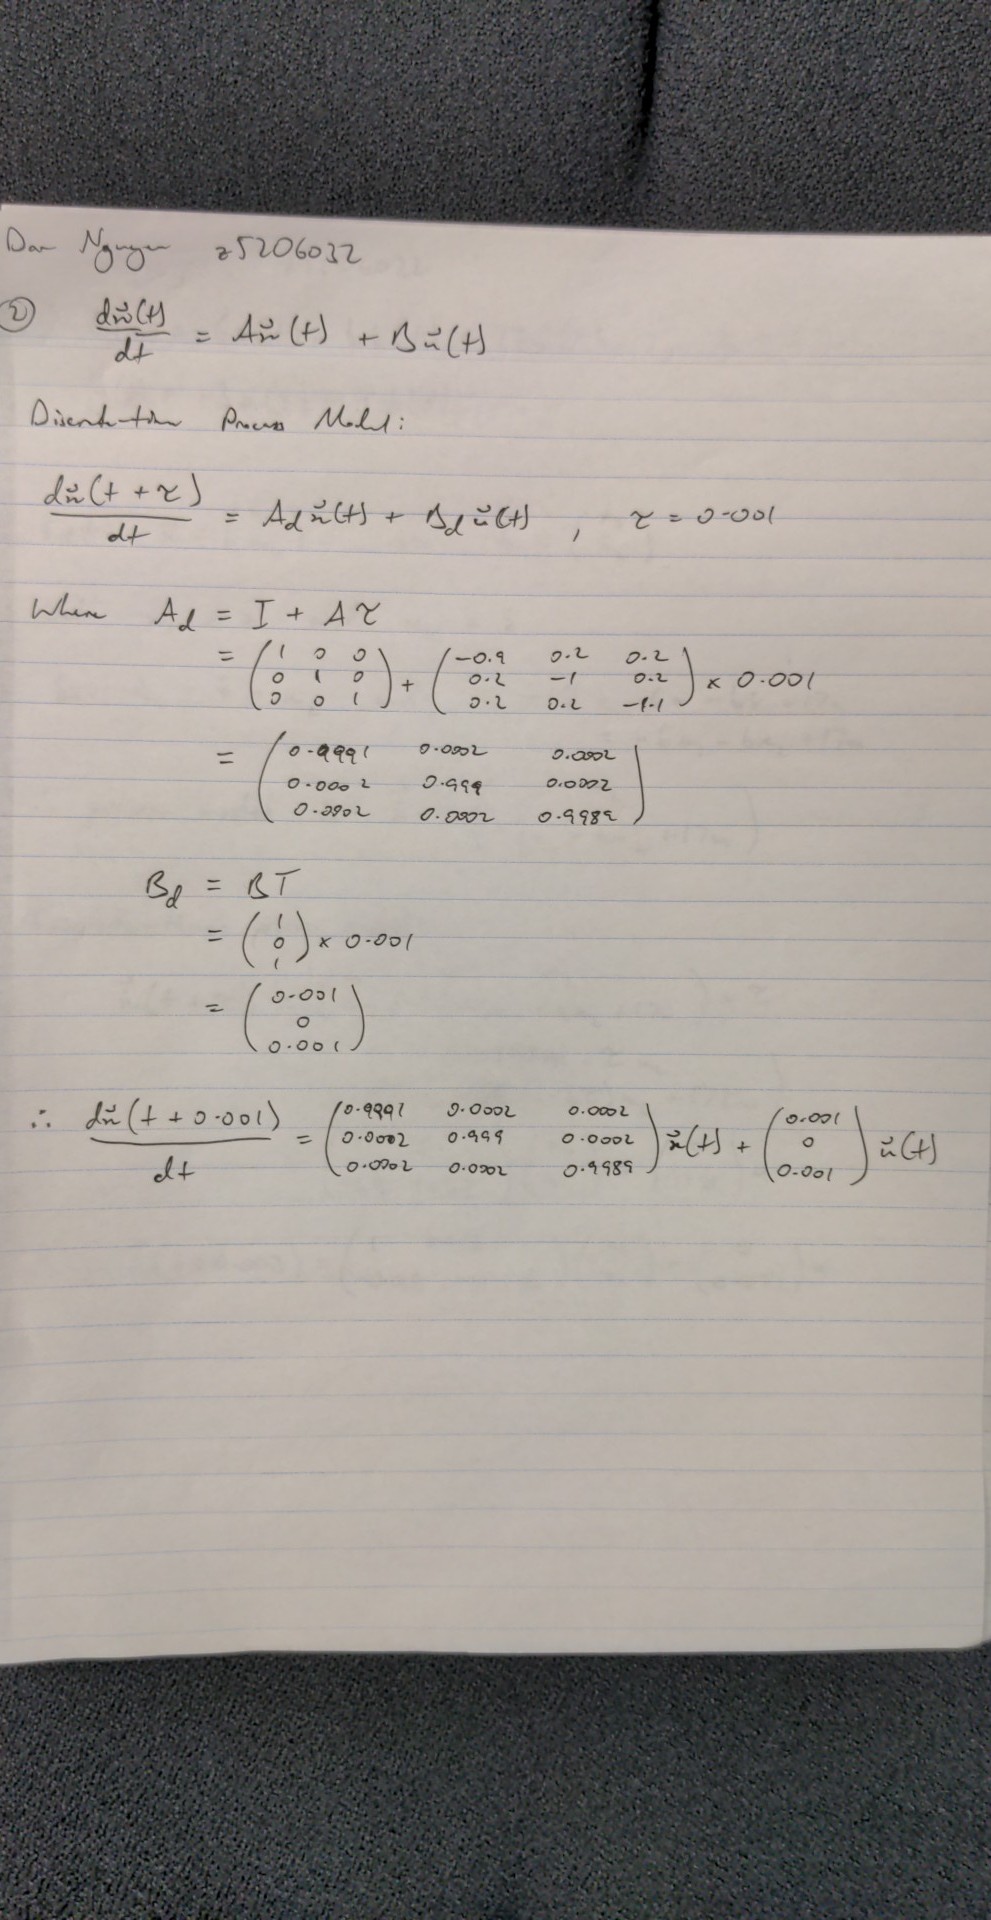 Dan Nguyen z5206032
② dx⃗(t)/dt = Ax⃗(t) + Bu⃗(t)
Discrete-time Process Model:
dx⃗(t + τ)/dt = A_d x⃗(t) + B_d u⃗(t) , τ = 0.001
Where A_d = I + Aτ
= (1 0 0; 0 1 0; 0 0 1) + (-0.9 0.2 0.2; 0.2 -1 0.2; 0.2 0.2 -1.1) × 0.001
= (0.9991 0.0002 0.0002; 0.0002 0.999 0.0002; 0.0002 0.0002 0.9989)
B_d = BT
= (1; 0; 1) × 0.001
= (0.001; 0; 0.001)
∴ dx⃗(t + 0.001)/dt = (0.9991 0.0002 0.0002; 0.0002 0.999 0.0002; 0.0002 0.0002 0.9989) x⃗(t) + (0.001; 0; 0.001) u⃗(t)